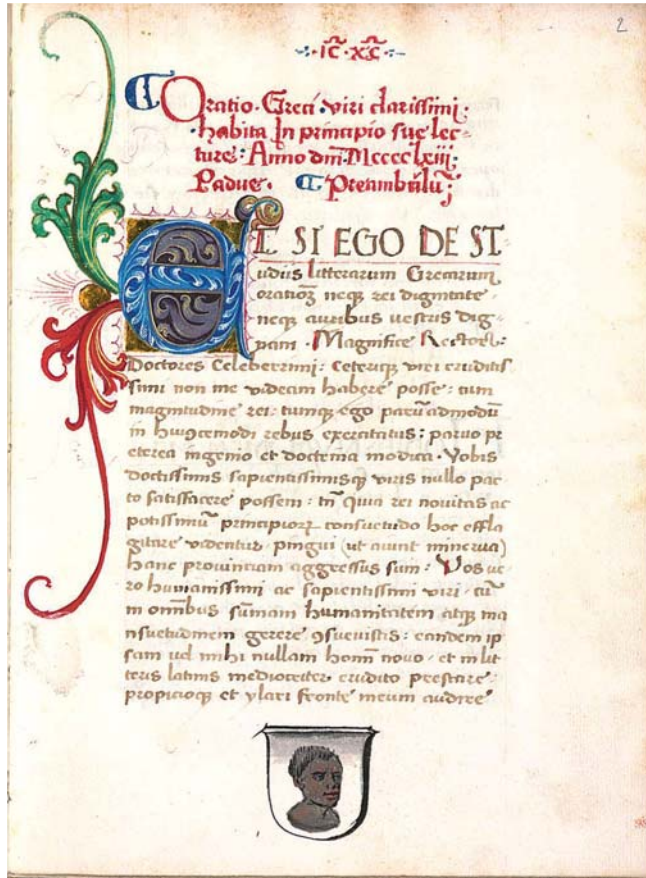 2
·IC̄·XC̄·
Oratio · Greci · viri clarissimi ·
· habita In principio sue lec-
ture : Anno dm̄ · Mcccclxiii :
Padue · Preambulū ;
ET SI EGO DE ST
udiis litterarum Grecarum
orationȝ neqȝ rei dignitate ·
neqȝ auribus vestris dig
nam · Magnifice Rector :
Doctores Celeberrimi : Ceteriqȝ viri eruditis
simi non me videam habere posse : tum
magnitudine rei : tumqȝ ego parū admodū
in huiꝰcemodi rebus exercitatus : paruo pr
eterea ingenio et doctrina modica · Vobis
doctissimis sapientissimisqȝ viris nullo pac
to satisfacere possem : tn̄ quia rei nouitas ac
potissimū principioꝝ consuetudo hoc effla
gitare videntur · pingui (ut aiunt minerua)
hanc prouinciam aggressus sum : Vos ue
ro humanissimi ac sapientissimi viri · cū
in om̄ibus sūmam humanitatem atqȝ ma
nsuetudinem gerere ꝯsueuistis : eandem ip
sam uel mihi nullam homī nouo · et in lit
teris latinis mediocriter erudito prestare ·
propicioqȝ et ylari fronte meum audire